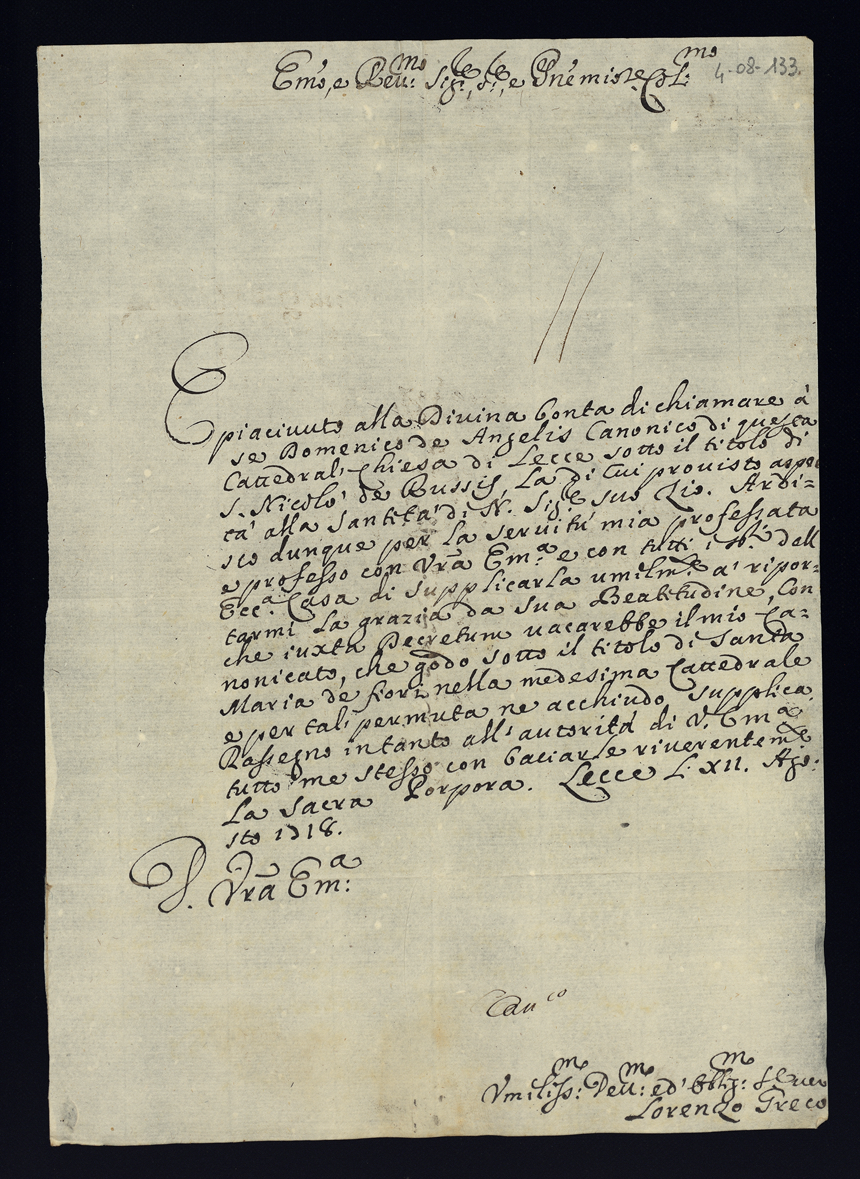 Em̃o, e Reu:mo Sig:re, Sig:re, e Pñe mio Col:mo
4-08-133.
E piaciuuto alla Divina bontà di chiamare à
se Domenico de Angelis Canonico di questa
Cattedral' Chiesa di Lecce sotto il titolo di
S. Nicolo' de Bussis, la di cui provista aspet
ta' alla Santita' di N. Sig:re suo Zio. Ardi=
sco dunque per la seruitu' mia professata
e professo con Vrã Em:a e con tutti i Sig:ri dell'
Ecc:a Casa di supplicarla umilm:te a' ripor=
tarmi la grazia da sua Beatitudine, Con
che iuxta Decretum vacarebbe il mio Ca=
nonicato, che godo sotto il titolo di Santa
Maria de fiori nella medesima Cattedrale
e per tal' permuta ne acchiudo supplica.
Rassegno intanto all' autorità di V. Em:a
tutto me stesso con baciarle riverentem:te
la Sacra Porpora. Lecce li XII. Ago:
sto 1718.
D. Vrã Em:a
Can:co
Vmiliss:mo Deu:mo ed' Obblig:mo Seruo
Lorenzo Greco